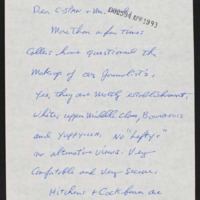 Dear C-SPAN + Mr.
APR 1993
More than a few times
Callers have questioned the
Makeup of our Journalists.
Yes, they are mostly establishment,
White, upper Middle Class, Bourgeois
and Yuppyish. No "Leftys"
no alternative views. Very
Comfortable and Very Secure.
Hitchens + Cockburn are